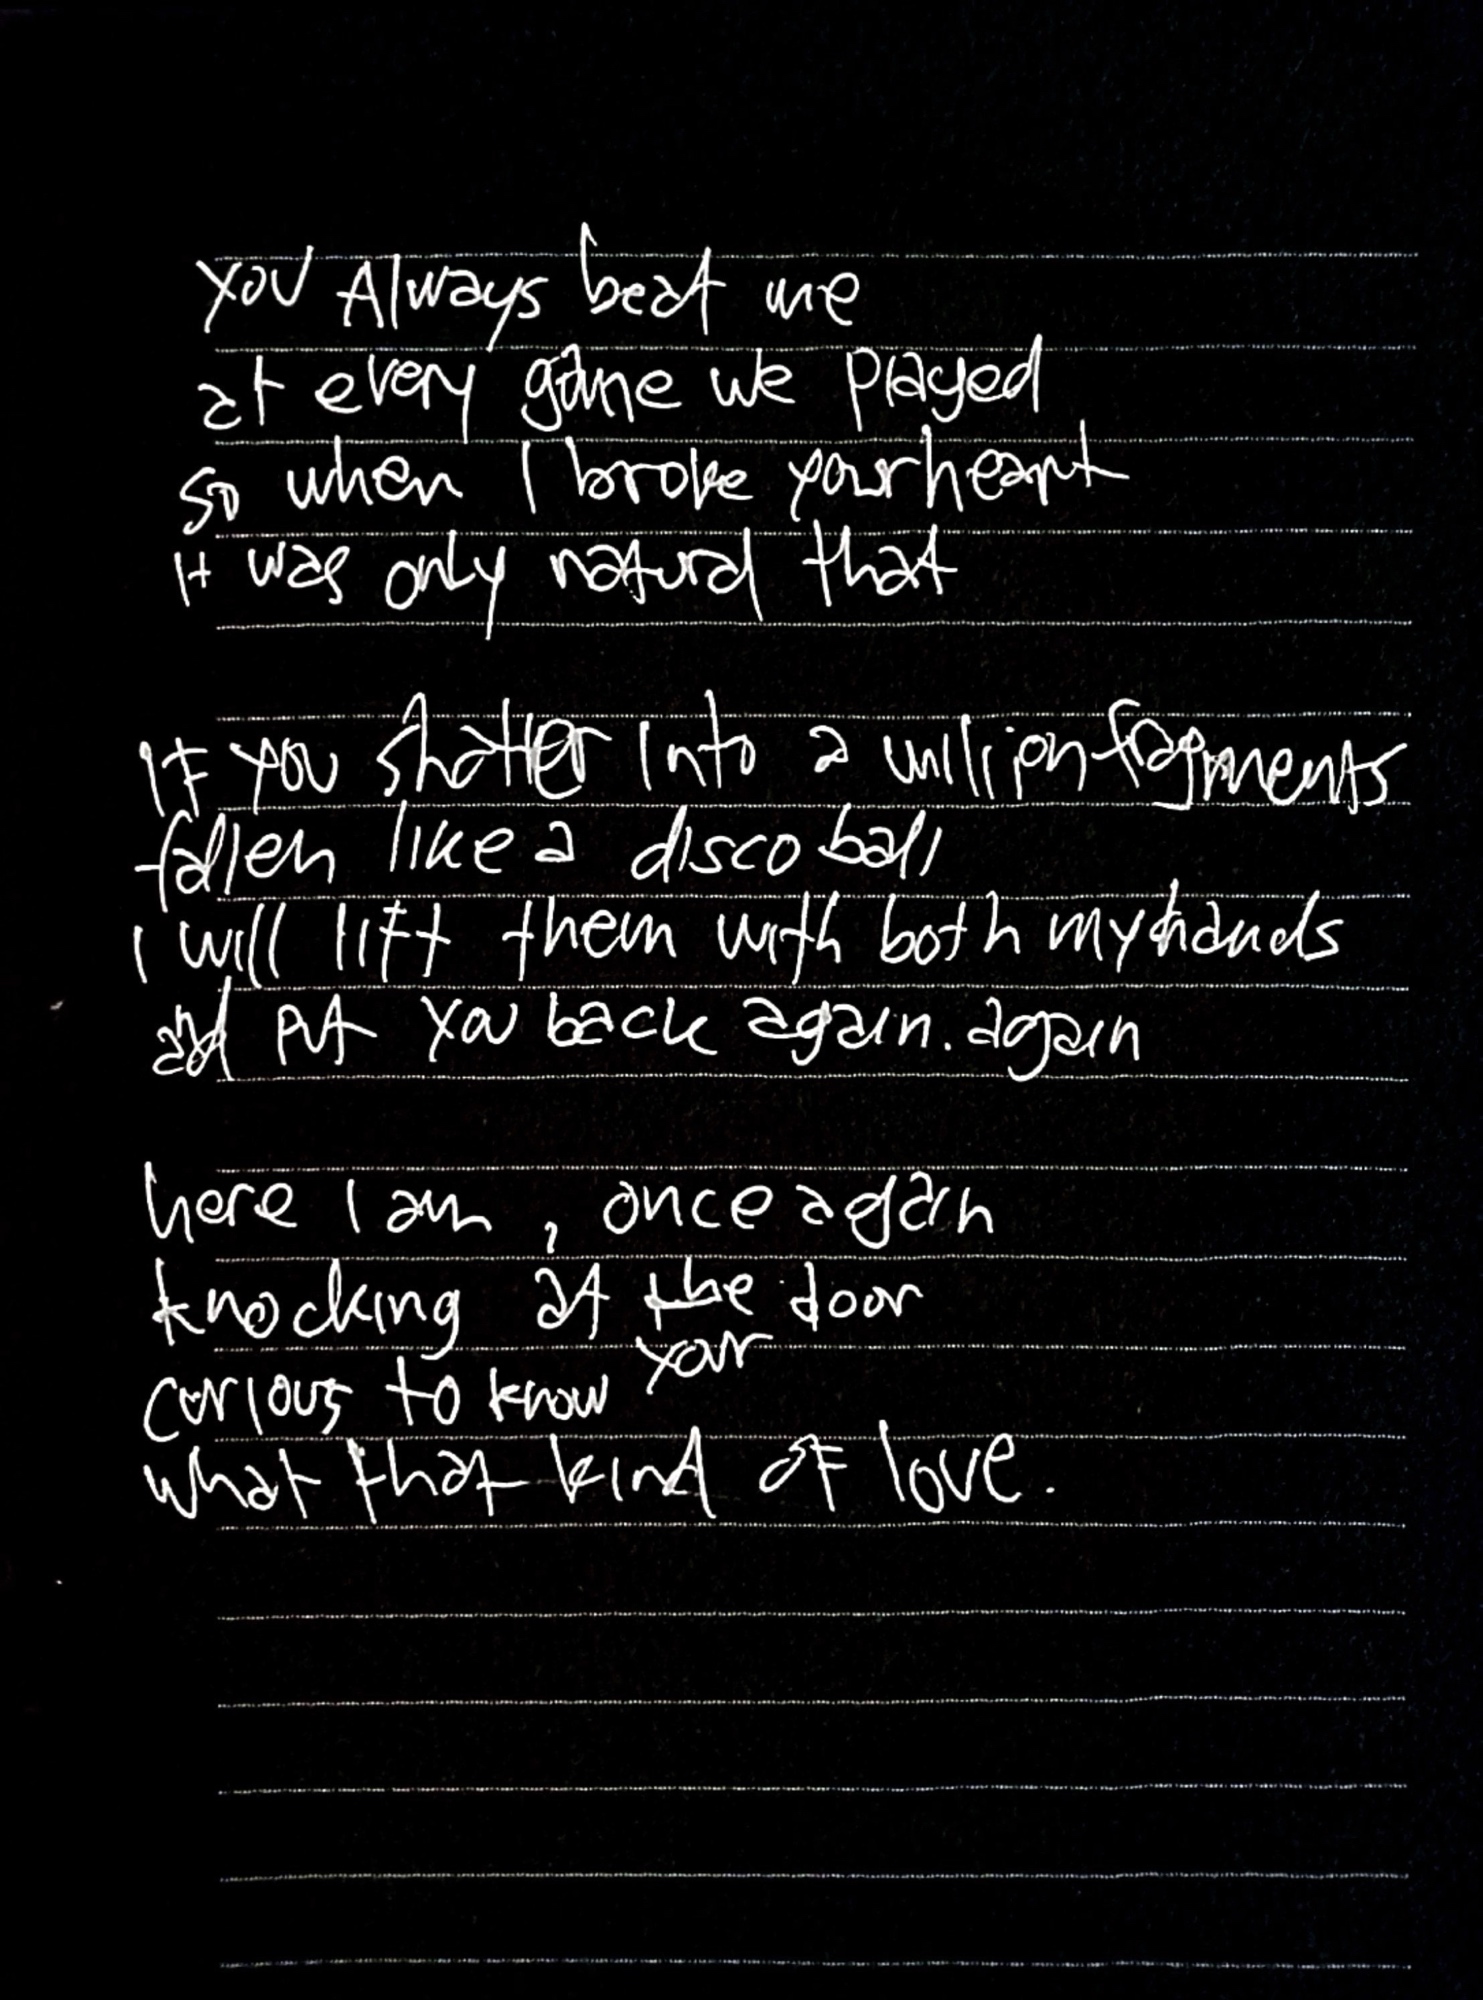 you Always beat me
at every game we played
so when I broke your heart
it was only natural that
If you shatter into a million fragments
fallen like a disco ball
I will lift them with both my hands
and put you back again. again
here I am, once again
knocking at the door
your
curious to know
what that kind of love.